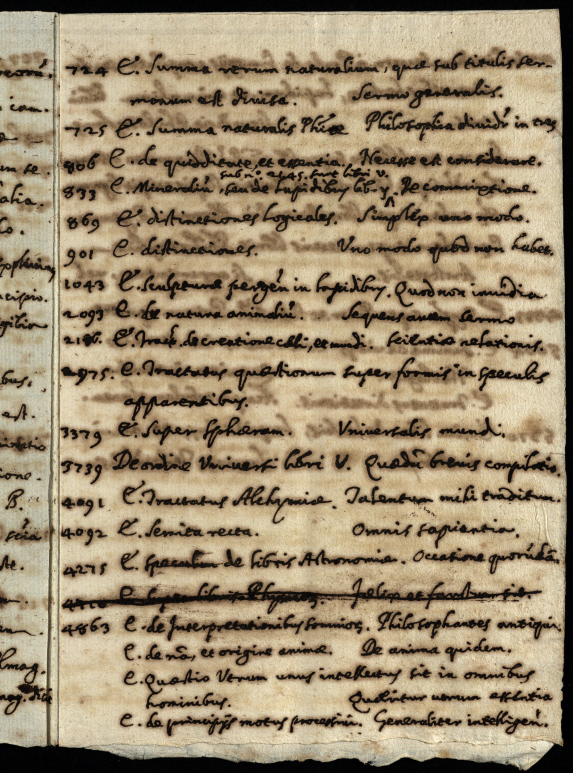 724 E. Summa rerum naturalium, quæ sub titulis ser-
monum est divisa. Sermo generalis.
725 E. Summa naturalis Phiæ Philosophia dividr in tres
806 E. de quidditate, et essentia. Necesse est considerare.
sub nº. 2145. sunt libri v.
833 E. Mineraliũ, seu de lapidibus lib. v. De commixtione.
869 E. distinctiones logicales. Simplex uno modo.
901 E. distinctiones. Uno modo quod non habet.
1043 E. sculpturæ in lapidibus. Quod non invidia
2093 E. de natura animaliũ. Sequens autem sermo
2186. E. Tract. de creatione cæli, et mundi. scientiæ relationis.
2975. E. Tractatus quæstionum super formis in speculis
apparentibus.
3379 E. super sphæram. Universalis mundi.
3739 De ordine Universi libri V. Quædã brevis compilatio.
4091 E. Tractatus Alchymiæ. Talentum mihi traditum.
4092 E. semita recta. Omnis sapientia.
4275 E. speculum de libris Astronomiæ. Occasione quorũdã
E. super libris Physicoȝ. Felix et sit.
4863 E. de Interpretationibus somnioȝ. Philosophantes antiqui.
E. de nã, et origine animæ. De anima quidem.
E. Quæstio Utrum unus intellectus sit in omnibus
hominibus. Quæritur utrum essentia
E. de principijs motus processivi. Generaliter intelligen.